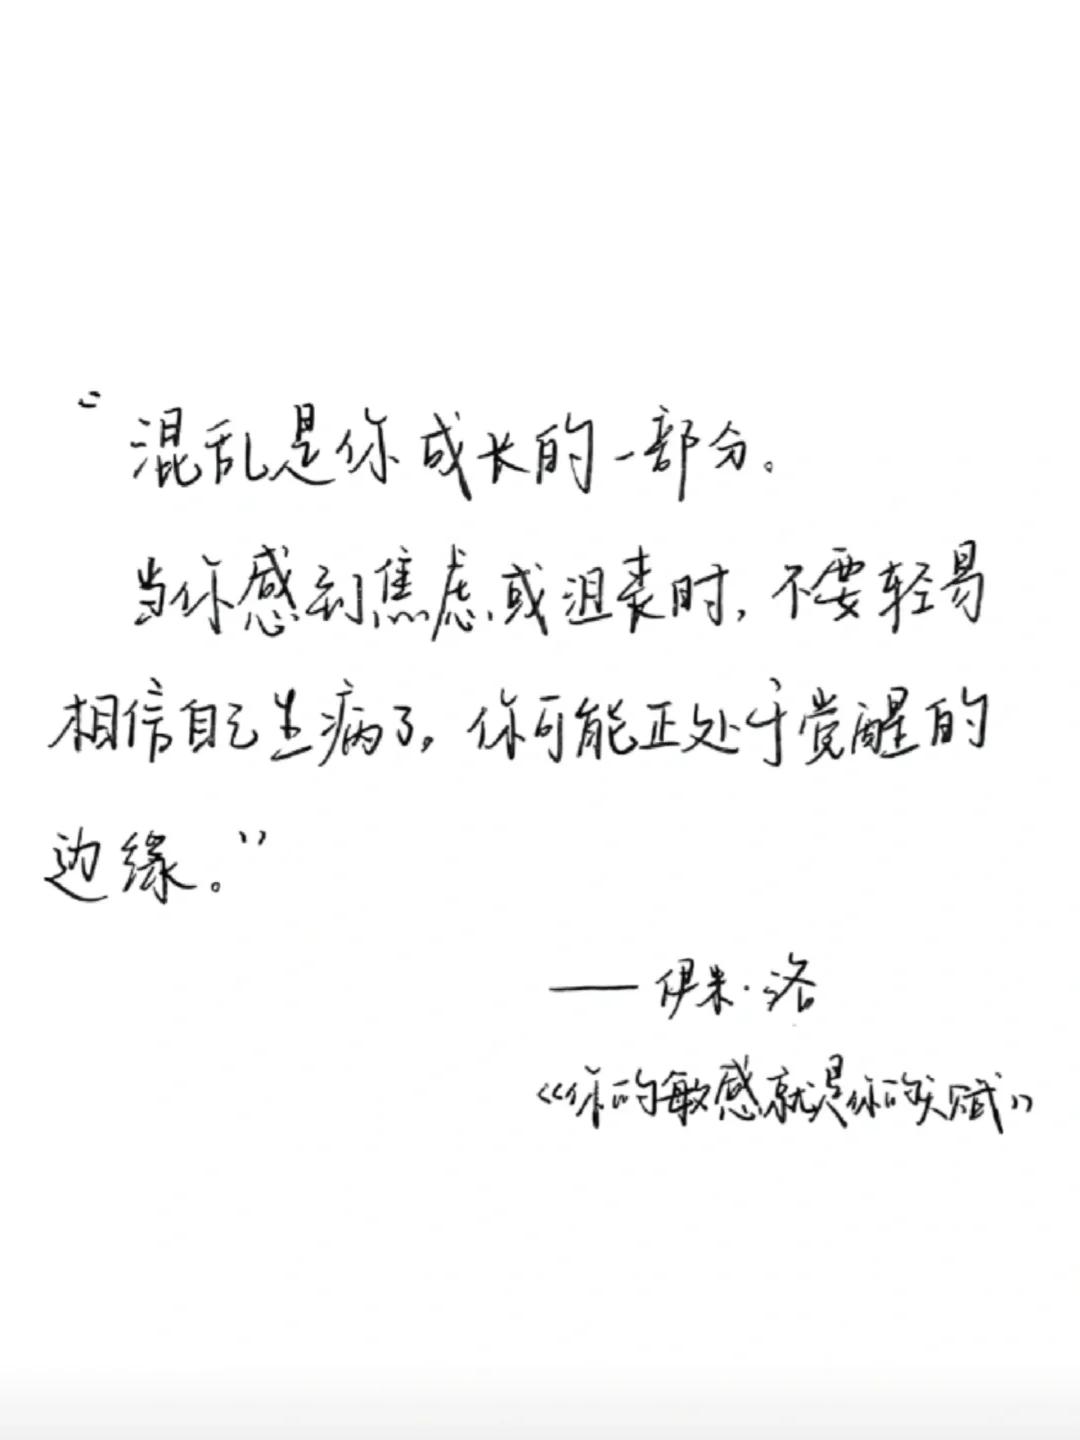 “混乱是你成长的一部分。
当你感到焦虑或沮丧时,不要轻易
相信自己生病了,你可能正处于觉醒的
边缘。”
——伊米·洛
《你的敏感就是你的天赋》